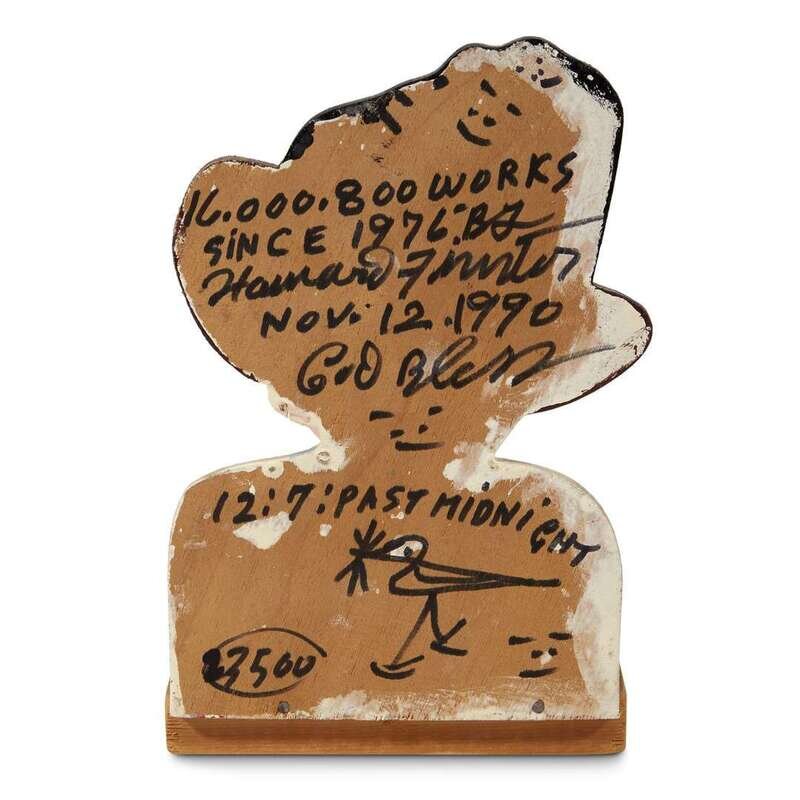 16.000.800 WORKS
SINCE 1976. BY
Howard Finster
NOV. 12. 1990
GOD Bless
12:7: PAST MIDNIGHT
3500